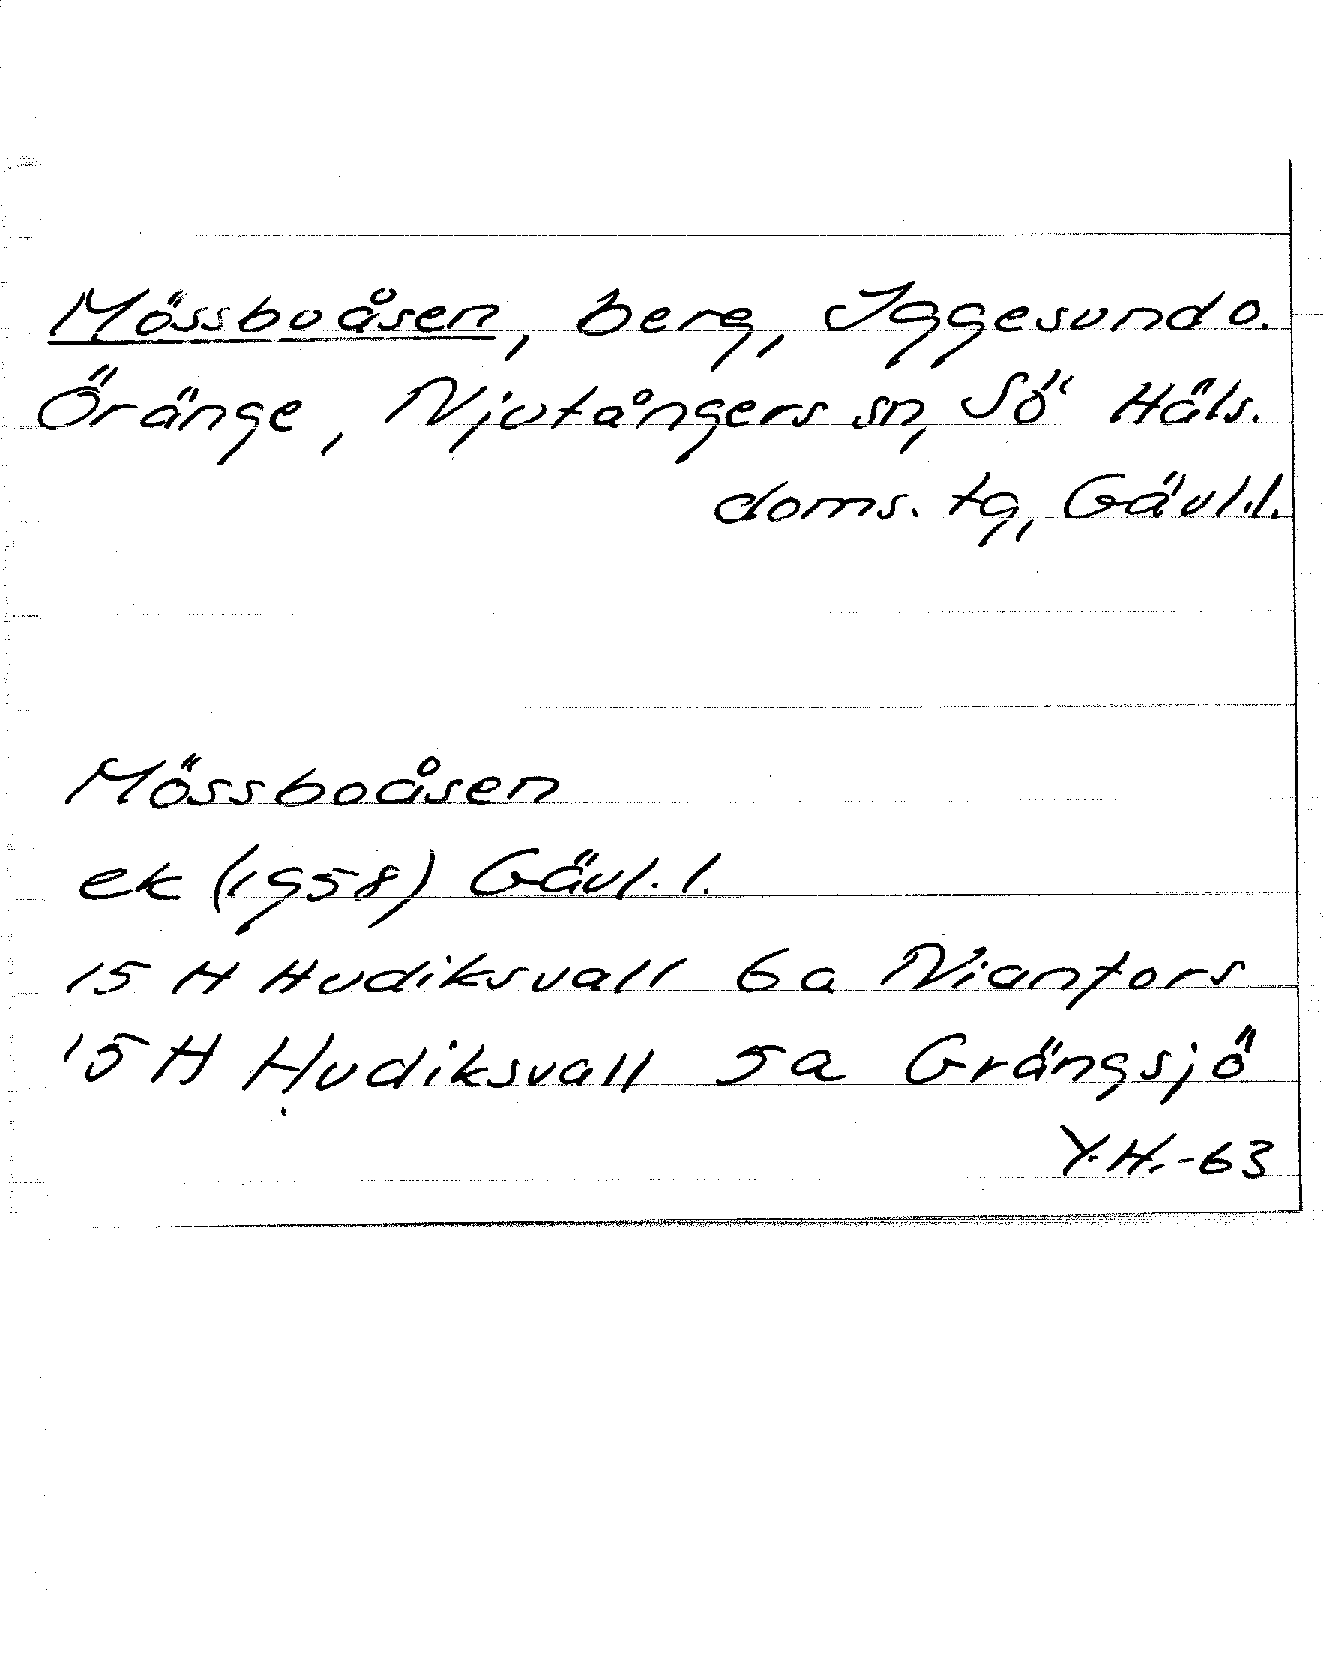 Mössboåsen, berg, Iggesund o.
Öränge, Njutångers sn, Sö Häls.
doms. tg, Gävl.l.
Mössboåsen
ek (1958) Gävl. l.
15 H Hudiksvall 6a Nianfors
15 H Hudiksvall 5a Grängsjö
Y.H.-63